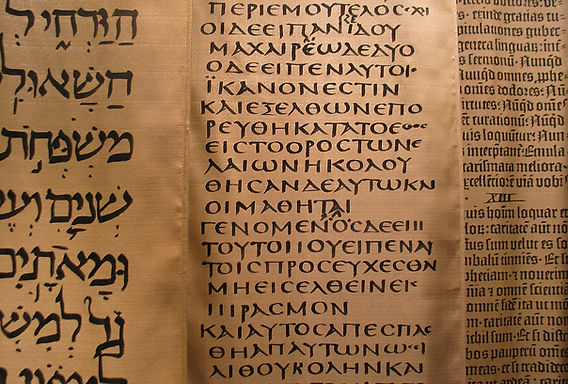 הַזַּרְחִי ל
הַשָּׁאוּל
מִשְׁפְּחֹת
שְׁנַיִם וְעֶשׂ
וּמָאתָיִם
גָד לְמִשְׁ
ΠΕΡΙΕΜΟΥΤΕΛΟϹ·
ΟΙΔΕΕΙΠΑΝΙΔΟΥ
ΜΑΧΑΙΡΕΩΔΕΔΥΟ
ΟΔΕΕΙΠΕΝΑΥΤΟΙ·
ΪΚΑΝΟΝΕϹΤΙΝ
ΚΑΙΕΞΕΛΘΩΝΕΠΟ
ΡΕΥΘΗΚΑΤΑΤΟΕΘΟϹ
ΕΙϹΤΟΟΡΟϹΤΩΝΕ
ΛΑΙΩΝΗΚΟΛΟΥ
ΘΗϹΑΝΔΕΑΥΤΩΚΑΙ
ΟΙΜΑΘΗΤΑΙ
ΓΕΝΟΜΕΝΟϹΔΕΕΠΙ
ΤΟΥΤΟΠΟΥΕΙΠΕΝΑΥ
ΤΟΙϹΠΡΟϹΕΥΧΕϹΘΑΙ
ΜΗΕΙϹΕΛΘΕΙΝΕΙϹ
ΠΙΡΑϹΜΟΝ
ΚΑΙΑΥΤΟϹΑΠΕϹΠΑϹ
ΘΗΑΠΑΥΤΩΝΩϹΕΙ
ΛΙΘΟΥΒΟΛΗΝΚΑΙ
exinde gratias tu-
pitulatiões guber
genera linguaꝝ: int-
s sermonū. Nunqd
Nunqd omnes pphe-
omēs doctores: Nu-
irtutes: Nunqd omēs
ēt curationū: Nunqd
is loquūtur: Nun-
interptant: Emula-
carismata meliora.
excellētiorē viā vobis
XIII
uis hoīm loquar et
lor: caritatē aūt nō
tus sum velut es so
nbalū tinniēs. Et si
phetiam: et nouerim
nia et omnē scientiā
omnē fidē ita ut mō
m: caritatē aūt non
ichil sum. Et si dist
bos pauperū omēs
meas: et si tradidero